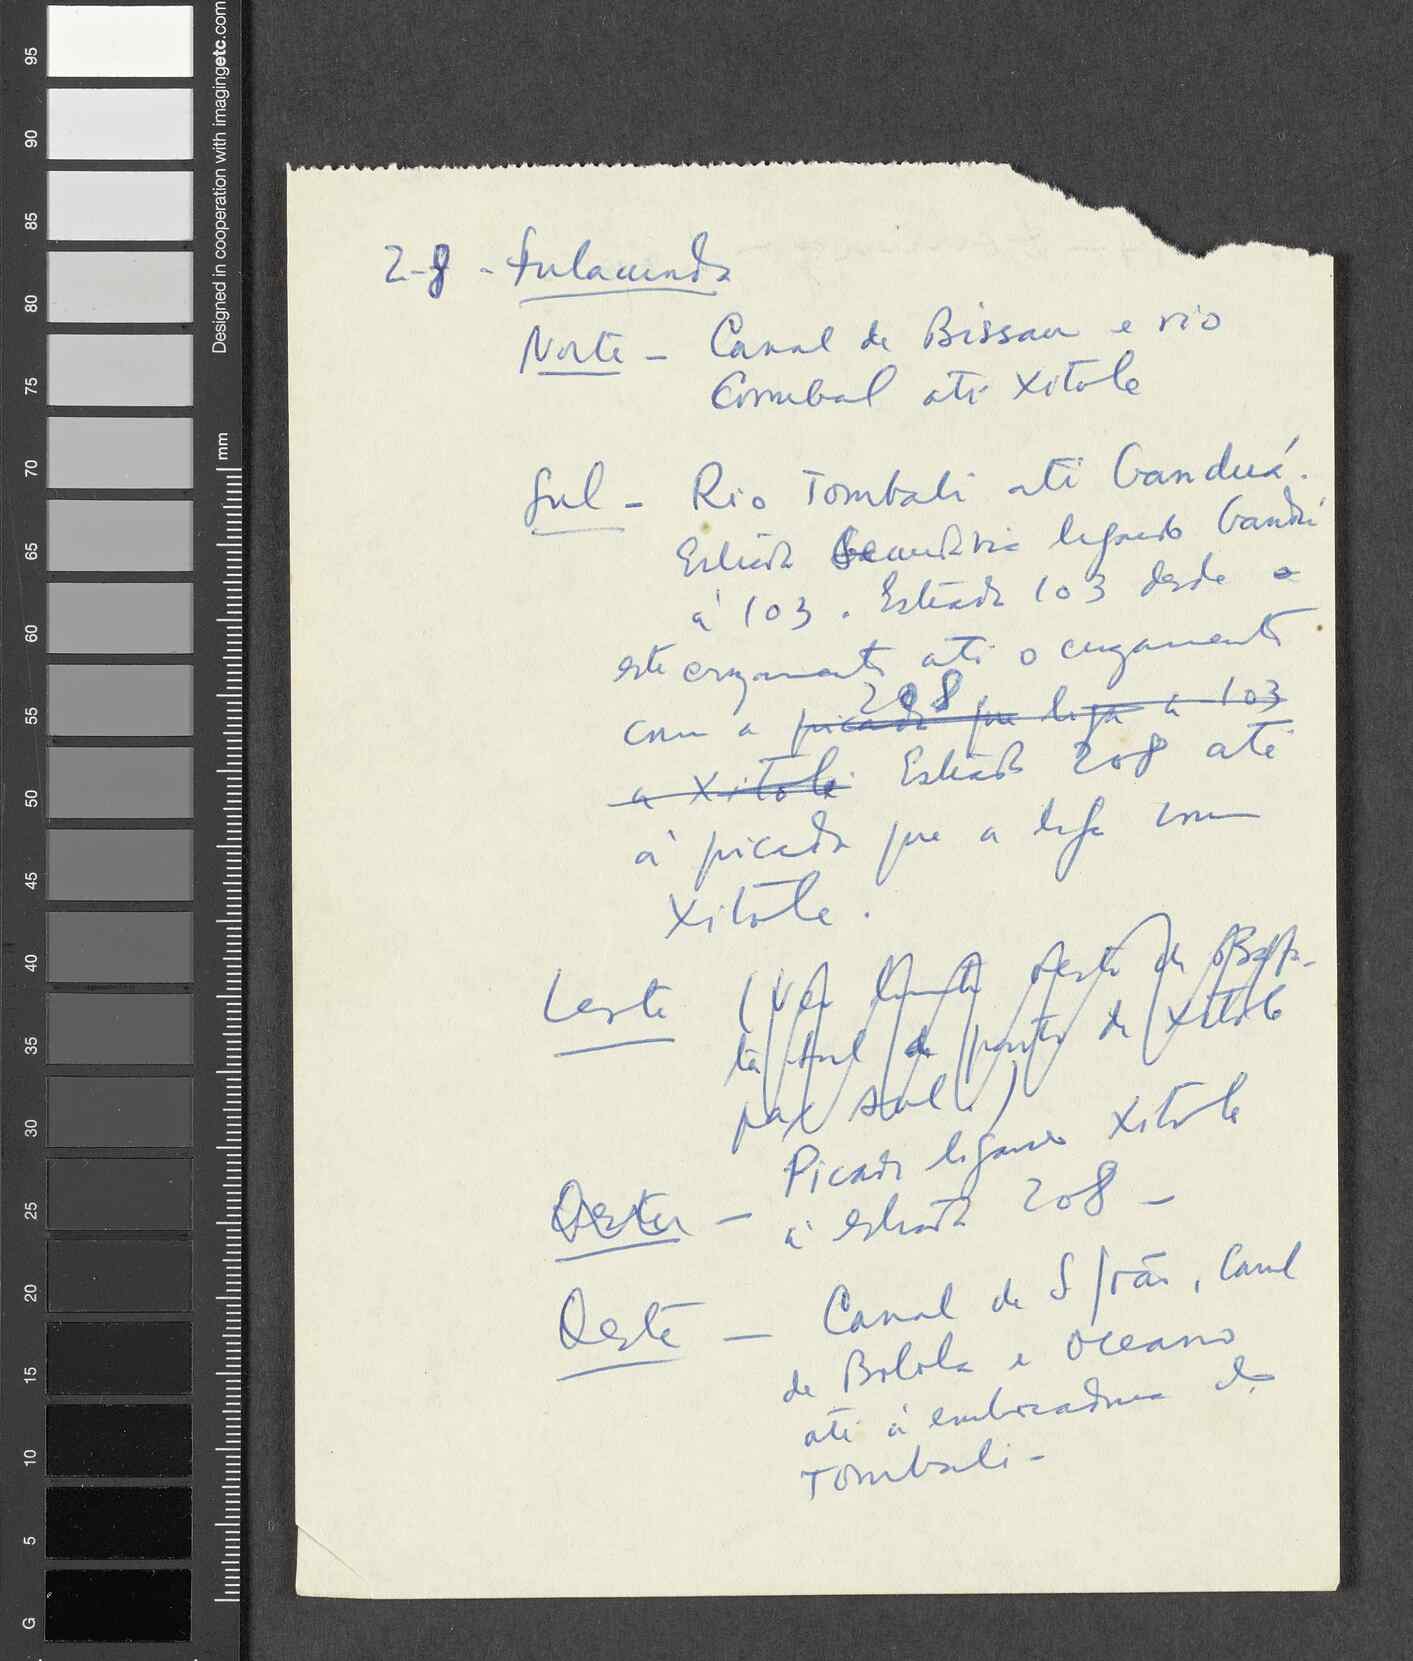 2-8 - Fulacunda
Norte - Canal de Bissau e rio
Corubal até Xitole
Sul - Rio Tombali até Ganduá.
Estrada secundária ligando Ganduá
à 103. Estrada 103 desde o
este cruzamento até o cruzamento
208
com a picada que liga a 103
a Xitole Estrada 208 até
à picada que a liga com
Xitole.
Leste (Ver limite oeste de
sul do ponto de Xitole
para sul.)
Picada ligando Xitole
Oeste -
à estrada 208 -
Oeste - Canal de S. João, Canal
de Bolola e Oceano
até à embocadura do
Tombali -
Designed in cooperation with imagingetc.com
mm
95
90
85
80
75
70
65
60
55
50
45
40
35
30
25
20
15
10
5
G